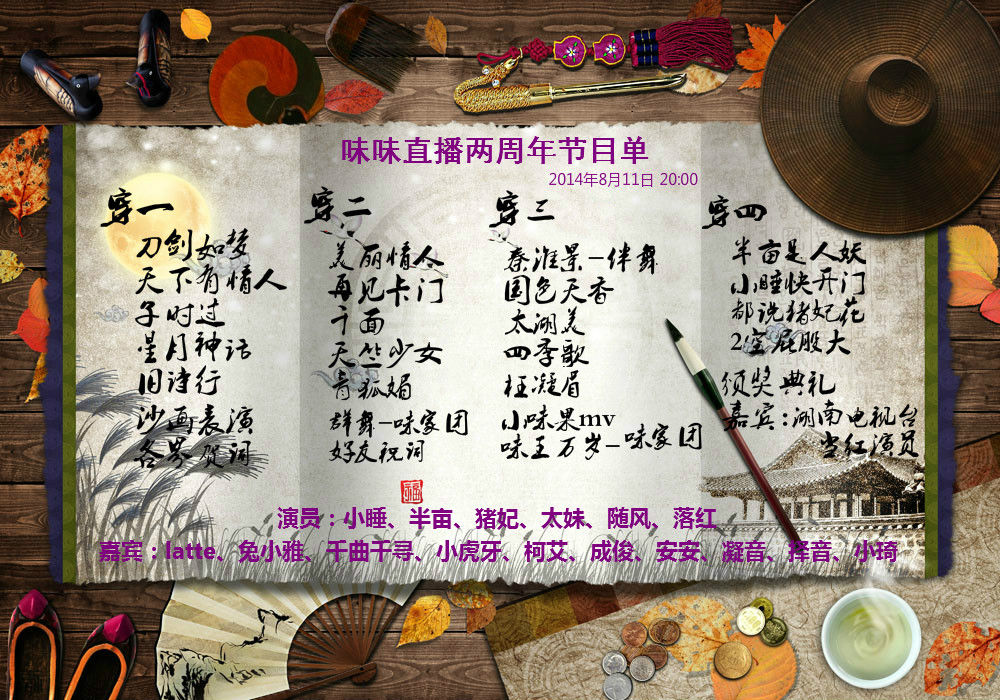 味味直播两周年节目单
2014年8月11日 20:00
穿一
刀剑如梦
天下有情人
子时过
星月神话
旧诗行
沙画表演
各界贺词
穿二
美丽情人
再见卡门
千面
天竺少女
青狐媚
群舞-味家团
好友祝词
穿三
秦淮景-伴舞
国色天香
太湖美
四季歌
枉凝眉
小味果mv
味王万岁-味家团
穿四
半亩是人妖
小睡快开门
都说猪妃花
2宝屁股大
颁奖典礼
嘉宾:湖南电视台
当红演员
福
演员:小睡、半亩、猪妃、太妹、随风、落红
嘉宾:latte、兔小雅、千曲千寻、小虎牙、柯艾、成俊、安安、凝音、择音、小琦